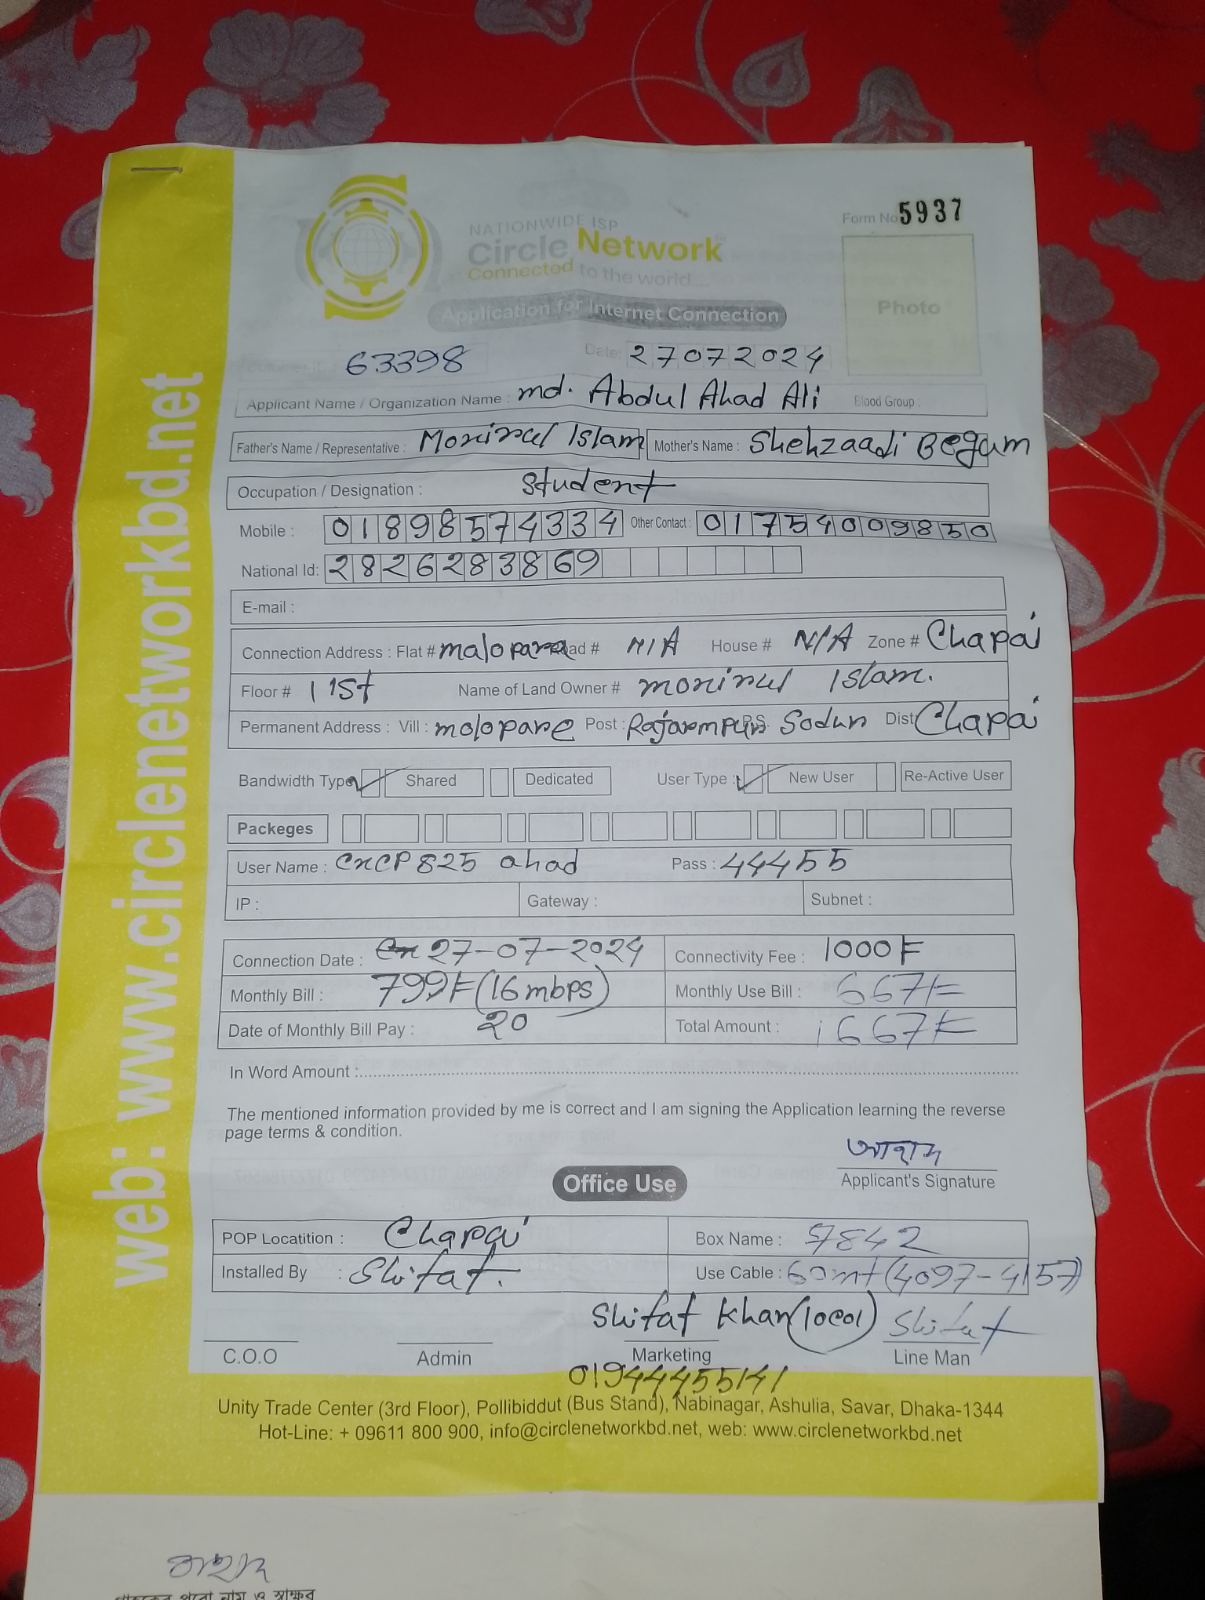 NATIONWIDE ISP
Circle Network
Connected to the world...
Form No 5937
Photo
Application for Internet Connection
63398
Date: 27072024
Applicant Name / Organization Name : md. Abdul Ahad Ali Blood Group :
Father's Name / Representative : Monirul Islam Mother's Name : Shehzaadi Begum
Occupation / Designation : Student
Mobile : 01898574334 Other Contact : 01754009850
National Id: 2826283869
E-mail :
Connection Address : Flat # malopara Road # N/A House # N/A Zone # Chapai
Floor # 1st Name of Land Owner # monirul Islam.
Permanent Address : Vill : molopare Post : Rajarampur P.S. Sodur Dist Chapai
Bandwidth Type Shared Dedicated User Type : New User Re-Active User
Packeges
User Name : CNCP825 ahad Pass : 44455
IP : Gateway : Subnet :
Connection Date : 27-07-2024 Connectivity Fee : 1000/=
Monthly Bill : 799/= (16mbps) Monthly Use Bill : 667/=
Date of Monthly Bill Pay : 20 Total Amount : 1667/=
In Word Amount :
The mentioned information provided by me is correct and I am signing the Application learning the reverse
page terms & condition.
আহাদ
Applicant's Signature
Office Use
POP Locatition : Chapai Box Name : 7842
Installed By : Shifat. Use Cable : 60mt (4097-4157)
Shifat Khan (local) Shifat
C.O.O Admin Marketing Line Man
01944455141
Unity Trade Center (3rd Floor), Pollibiddut (Bus Stand), Nabinagar, Ashulia, Savar, Dhaka-1344
Hot-Line: + 09611 800 900, info@circlenetworkbd.net, web: www.circlenetworkbd.net
web: www.circlenetworkbd.net
আহাদ
গ্রাহকের পুরো নাম ও স্বাক্ষর